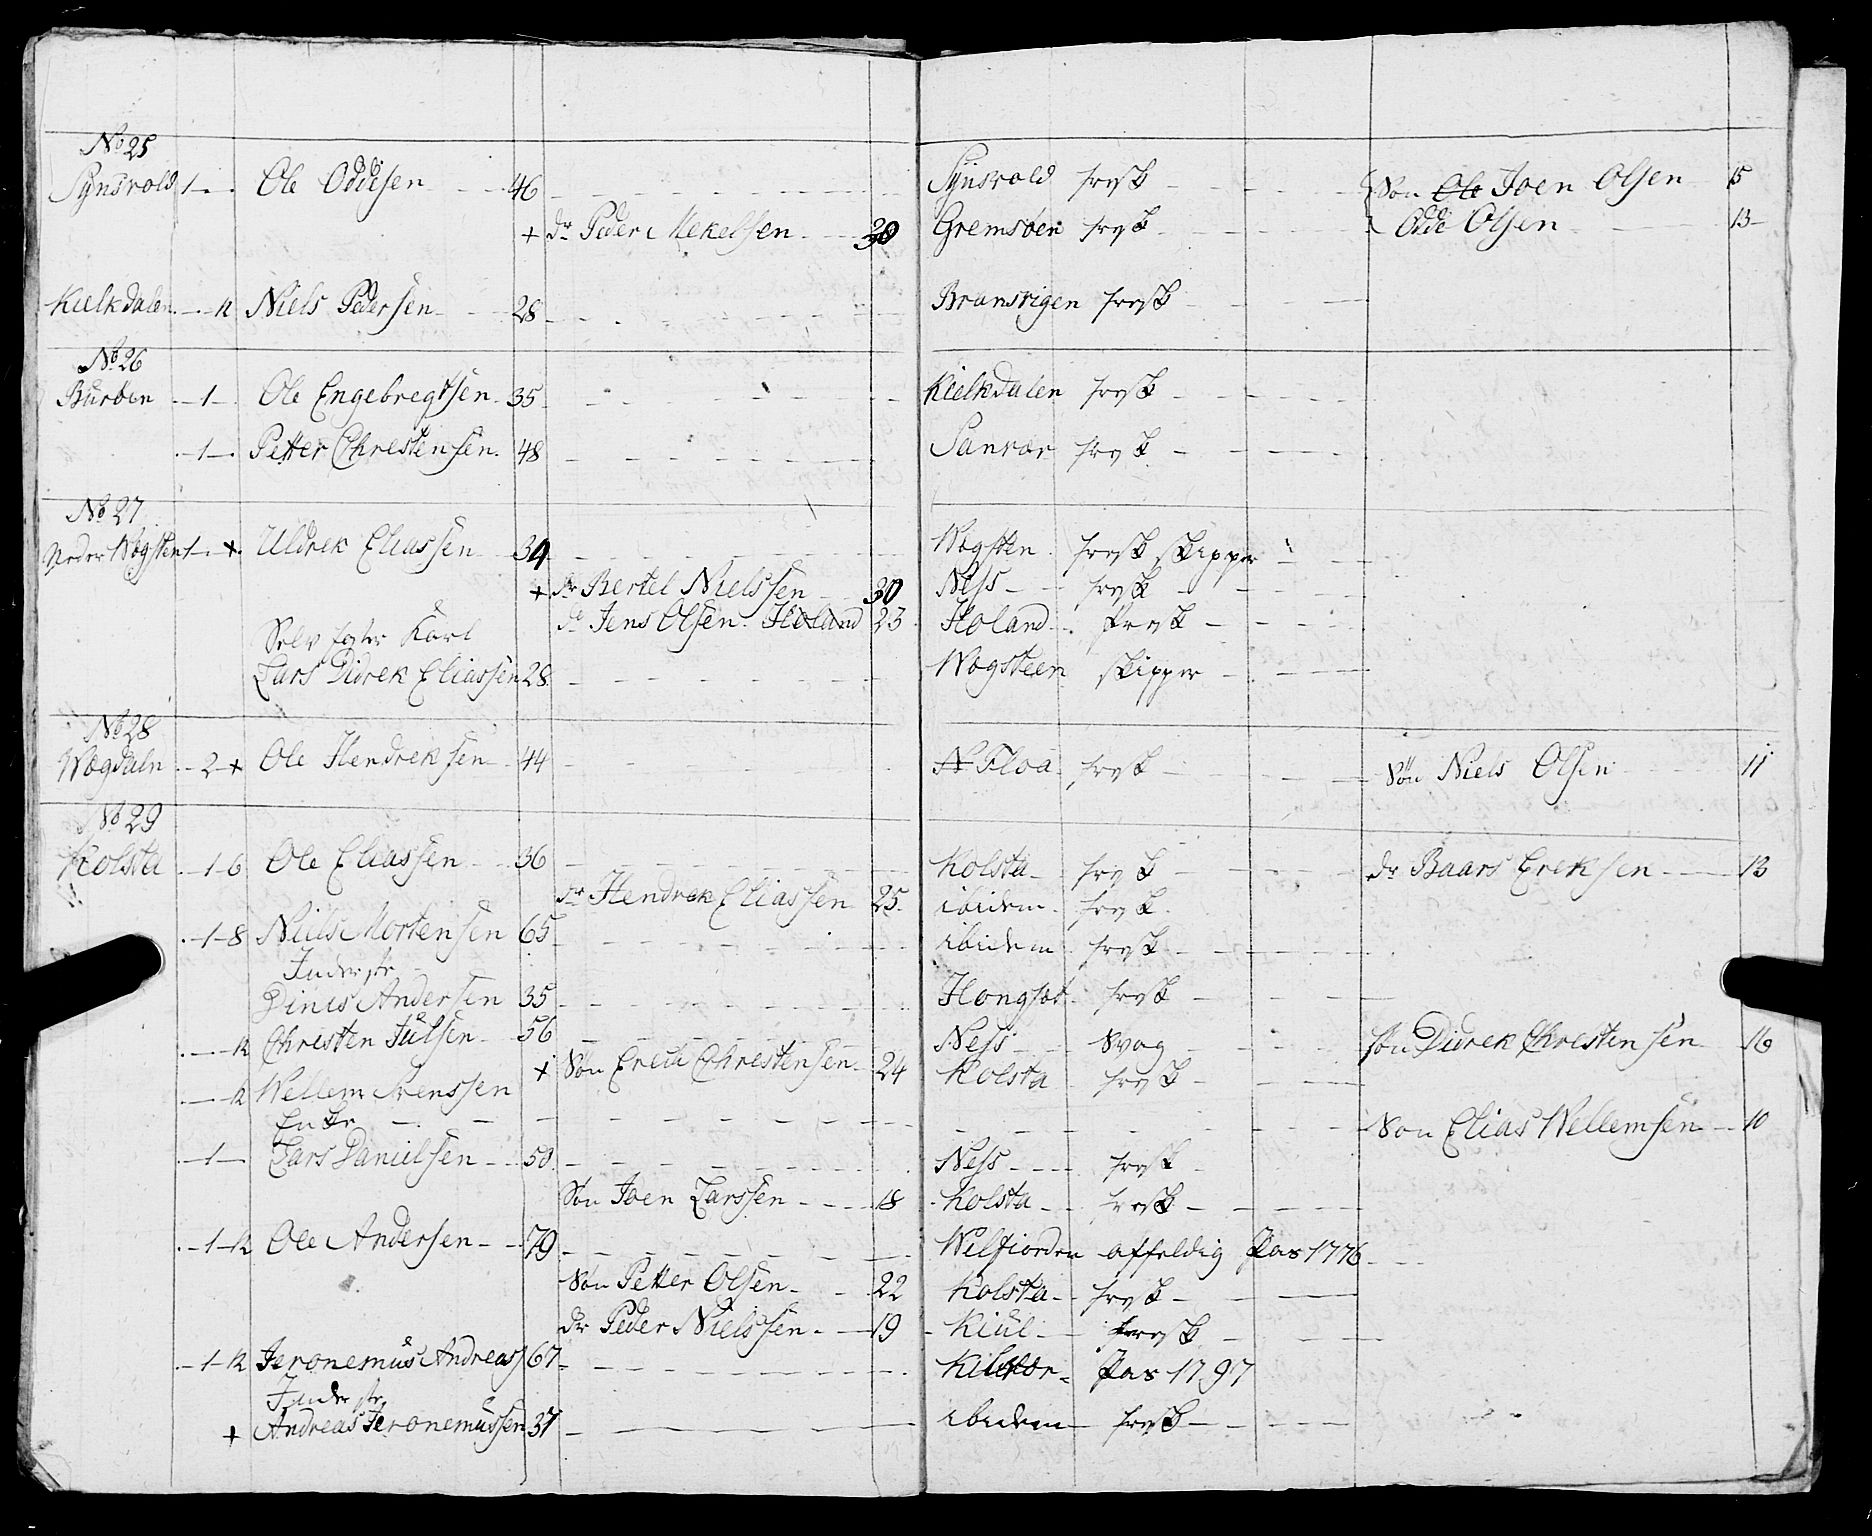 No 25
Synsvold 1 - Ole Oddesen 46 Synsvold frisk Søn Ole Joen Olsen 15
+ dr Peder Mekelsen 30 Gremsöen frisk Odde Olsen 13
Kielkdalen K Niels Pedersen 28 Brunsvigen frisk
No 26
Burøen 1 Ole Engebregtsen 35 Kielkdalen frisk
1 Petter Chrestensen 48 Sanvær frisk
No 27
Neder Wogsten 1 + Uldrek Eliassen 34 Wogsten frisk skipper
+ dr Bertel Nielssen 30 Ness frisk
do Jens Olsen Holand 23 Holand frisk
Selv Karl
Lars Didrek Eliassen 28 Wogsteen skipper
No 28
Wogdaln 2 + Ole Hendreksen 44 N Floa frisk Søn Niels Olsen 11
No 29
Kolsta 1 6 Ole Eliassen 36 Kolsta frisk dr Baars Ereksen 13
dr Hendrek Eliassen 25 ibidem frisk
1 8 Niels Mortensen 65 ibidem frisk
Inderste
Dines Andersen 35 Hongset frisk
K Christen Julsen 56 Ness Svag søn Didrek Chrestensen 16
+ Søn Erek Chrestensen 24 Kolsta frisk
K Wellem Svenssen
Enke Søn Elias Wellemsen 10
1 Lars Danielsen 50 Ness frisk
Søn Joen Larssen 18 Kolsta frisk
1 K Ole Andersen 79 Welfiorden affeldig Pas 1776
Søn Petter Olsen 22 Kolsta frisk
dr Peder Nielssen 19 Kiul frisk
1 K Jeronemus Andreas 67 Pas 1797
Inderste
+ Andreas Jeronemussen 37 ibidem frisk